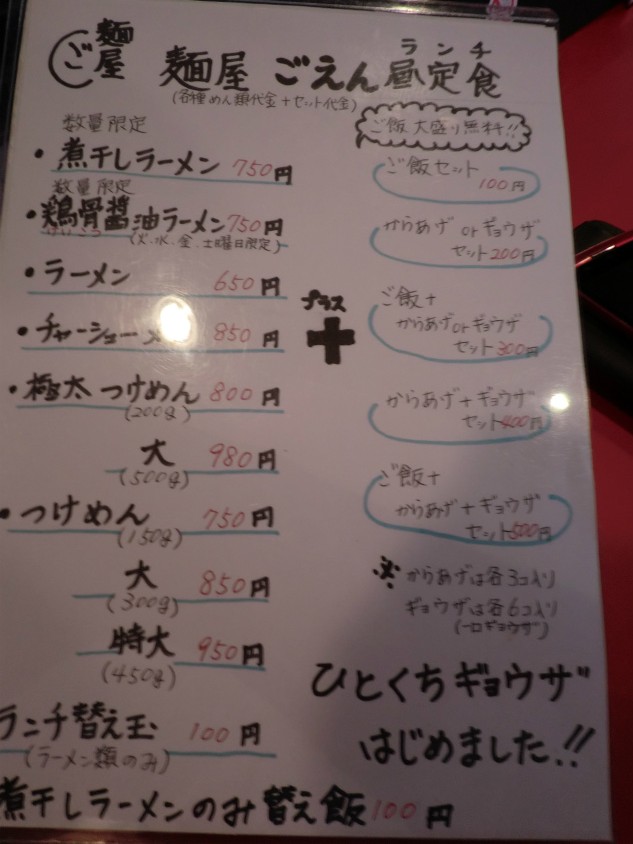 ご 麺屋
麺屋 ごえん 昼定食
ランチ
(各種めん類代金+セット代金)
数量限定
・煮干しラーメン 750円
数量限定
・鶏骨醤油ラーメン 750円
けいこつ
(火、水、金、土曜日限定)
・ラーメン 650円
・チャーシューメ 850円
・極太つけめん 800円
(200g)
大 980円
(500g)
・つけめん 750円
(150g)
大 850円
(300g)
特大 950円
(450g)
ランチ替え玉 100円
(ラーメン類のみ)
煮干しラーメンのみ替え飯100円
プラス
+
ご飯大盛り無料!!
ご飯セット
100円
からあげ or ギョウザ
セット200円
ご飯+
からあげorギョウザ
セット300円
からあげ+ギョウザ
セット400円
ご飯+
からあげ+ギョウザ
セット500円
※からあげは各3コ入り
ギョウザは各6コ入り
(一口ギョウザ)
ひとくちギョウザ
はじめました.!!